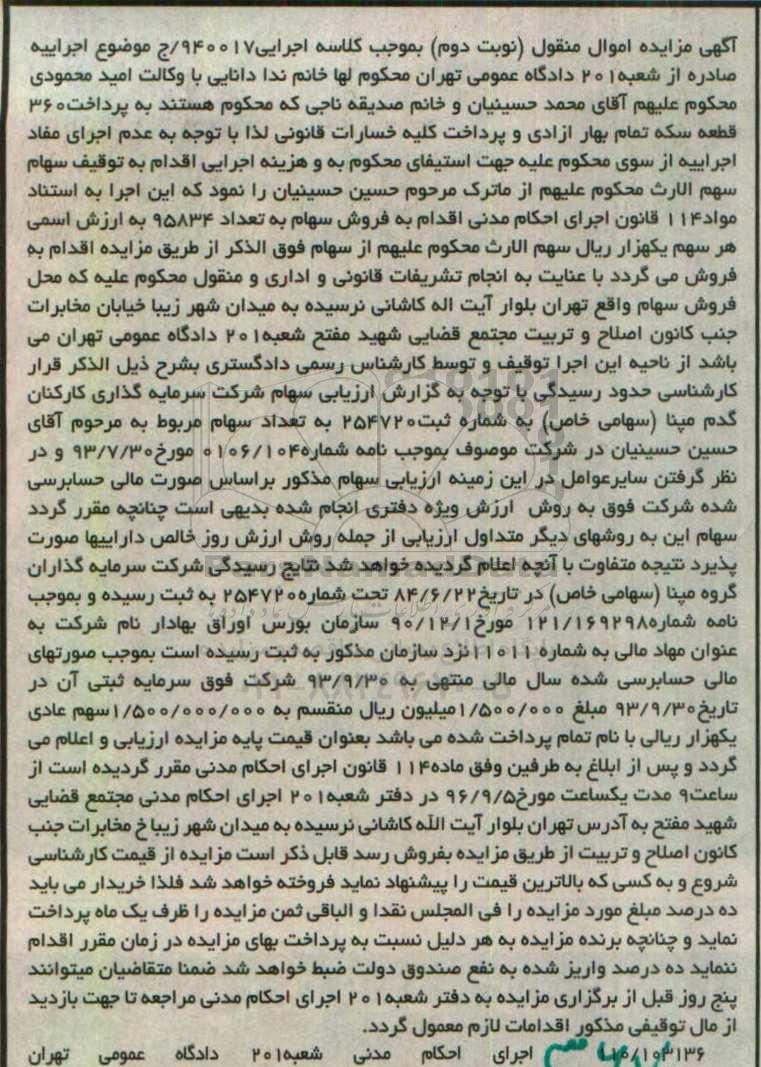 آگهی مزایده اموال منقول (نوبت دوم) بموجب کلاسه اجرایی۹۴۰۰۱۷/ج موضوع اجراییه
صادره از شعبه۲۰۱ دادگاه عمومی تهران محکوم لها خانم ندا دانایی با وکالت امید محمودی
محکوم علیهم آقای محمد حسینیان و خانم صدیقه ناجی که محکوم هستند به پرداخت۳۶۰
قطعه سکه تمام بهار ازادی و پرداخت کلیه خسارات قانونی لذا با توجه به عدم اجرای مفاد
اجراییه از سوی محکوم علیه جهت استیفای محکوم به و هزینه اجرایی اقدام به توقیف سهام
سهم الارث محکوم علیهم از ماترک مرحوم حسین حسینیان را نمود که این اجرا به استناد
مواد۱۱۴ قانون اجرای احکام مدنی اقدام به فروش سهام به تعداد ۹۵۸۳۴ به ارزش اسمی
هر سهم یکهزار ریال سهم الارث محکوم علیهم از سهام فوق الذکر از طریق مزایده اقدام به
فروش می گردد با عنایت به انجام تشریفات قانونی و اداری و منقول محکوم علیه که محل
فروش سهام واقع تهران بلوار آیت اله کاشانی نرسیده به میدان شهر زیبا خیابان مخابرات
جنب کانون اصلاح و تربیت مجتمع قضایی شهید مفتح شعبه۲۰۱ دادگاه عمومی تهران می
باشد از ناحیه این اجرا توقیف و توسط کارشناس رسمی دادگستری بشرح ذیل الذکر قرار
کارشناسی حدود رسیدگی با توجه به گزارش ارزیابی سهام شرکت سرمایه گذاری کارکنان
گدم مپنا (سهامی خاص) به شماره ثبت۲۵۴۷۲۰ به تعداد سهام مربوط به مرحوم آقای
حسین حسینیان در شرکت موصوف بموجب نامه شماره۰۱۰۶/۱۰۴ مورخ۹۳/۷/۳۰ و در
نظر گرفتن سایرعوامل در این زمینه ارزیابی سهام مذکور براساس صورت مالی حسابرسی
شده شرکت فوق به روش ارزش ویژه دفتری انجام شده بدیهی است چنانچه مقرر گردد
سهام این به روشهای دیگر متداول ارزیابی از جمله روش ارزش روز خالص داراییها صورت
پذیرد نتیجه متفاوت با آنچه اعلام گردیده خواهد شد نتایج رسیدگی شرکت سرمایه گذاران
گروه مپنا (سهامی خاص) در تاریخ۸۴/۶/۲۲ تحت شماره۲۵۴۷۲۰ به ثبت رسیده و بموجب
نامه شماره۱۲۱/۱۶۹۲۹۸ مورخ۹۰/۱۲/۱ سازمان بورس اوراق بهادار نام شرکت به
عنوان مهاد مالی به شماره ۱۱۰۱۱نزد سازمان مذکور به ثبت رسیده است بموجب صورتهای
مالی حسابرسی شده سال مالی منتهی به ۹۳/۹/۳۰ شرکت فوق سرمایه ثبتی آن در
تاریخ۹۳/۹/۳۰ مبلغ ۱/۵۰۰/۰۰۰میلیون ریال منقسم به ۱/۵۰۰/۰۰۰/۰۰۰سهم عادی
یکهزار ریالی با نام تمام پرداخت شده می باشد بعنوان قیمت پایه مزایده ارزیابی و اعلام می
گردد و پس از ابلاغ به طرفین وفق ماده۱۱۴ قانون اجرای احکام مدنی مقرر گردیده است از
ساعت۹ مدت یکساعت مورخ۹۶/۹/۵ در دفتر شعبه۲۰۱ اجرای احکام مدنی مجتمع قضایی
شهید مفتح به آدرس تهران بلوار آیت الله کاشانی نرسیده به میدان شهر زیبا خ مخابرات جنب
کانون اصلاح و تربیت از طریق مزایده بفروش رسد قابل ذکر است مزایده از قیمت کارشناسی
شروع و به کسی که بالاترین قیمت را پیشنهاد نماید فروخته خواهد شد فلذا خریدار می باید
ده درصد مبلغ مورد مزایده را فی المجلس نقدا و الباقی ثمن مزایده را ظرف یک ماه پرداخت
نماید و چنانچه برنده مزایده به هر دلیل نسبت به پرداخت بهای مزایده در زمان مقرر اقدام
ننماید ده درصد واریز شده به نفع صندوق دولت ضبط خواهد شد ضمنا متقاضیان میتوانند
پنج روز قبل از برگزاری مزایده به دفتر شعبه۲۰۱ اجرای احکام مدنی مراجعه تا جهت بازدید
از مال توقیفی مذکور اقدامات لازم معمول گردد.
۱۱۰/۱۰۳۱۳۶ اجرای احکام مدنی شعبه۲۰۱ دادگاه عمومی تهران